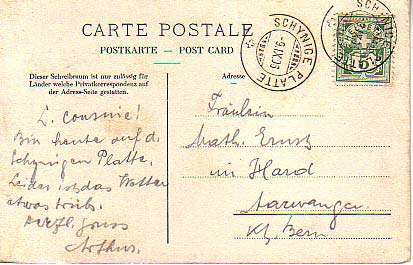 CARTE POSTALE
POSTKARTE - POST CARD
Dieser Schreibraum ist nur zulässig für
Länder welche Privatkorrespondenz auf
der Adress-Seite gestatten.
Adresse
SCHYNIGE PLATTE
SCHYNIGE PLATTE
5
L. Cousine!
Bin heute auf d.
Schynigen Platte.
Leider ist das Wetter
etwas trüb.
Herzl. Gruss
Arthur.
Fräulein
Math. Ernst
im Hard
Aarwangen
Kt. Bern